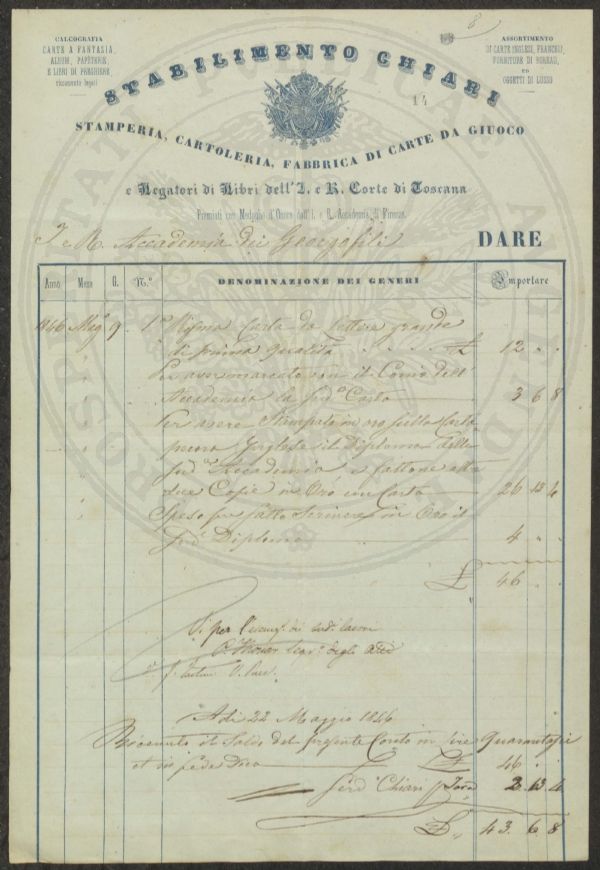 8
CALCOGRAFIA
CARTE A FANTASIA,
ALBUM, PAPETERIE,
E LIBRI DI PREGHIERE
riccamente legati
ASSORTIMENTO
DI CARTE INGLESI, FRANCESI,
FORNITURE DI BUREAU,
ED
OGGETTI DI LUSSO
STABILIMENTO CHIARI
14
STAMPERIA, CARTOLERIA, FABBRICA DI CARTE DA GIUOCO
e Legatori di Libri dell'I. e R. Corte di Toscana
Premiati con Medaglia d'Onore dall'I. e R. Accademia di Firenze.
I e R. Accademia dei Georgofili DARE
Anno Mese G. N.º DENOMINAZIONE DEI GENERI Importare
1846 Mag.º 9 1.ª Risma Carta da lettere grande
di prima qualità £ 12 " "
Per aver marcato con il Conio dell
Accademia la sud.ª Carta 3 6 8
Per avere Stampato in oro sulla Carta
pecora Inglese il Diploma della
sud.ª Accademia e fattone altre
due Copie in Oro con Carta 26 13 4
Speso per fatto Scrivere in Oro il
sud.º Diploma 4 " "
£ 46 " "
V. per l'esecuz.e dei sud.i lavori
Segr.º degli Atti
Adi 22 Maggio 1846
Ricevuto il Saldo del presente Conto in lire Quarantasei
et in fede Dico £ 46 " "
Chiari 2 13 4
£ 43 6 8